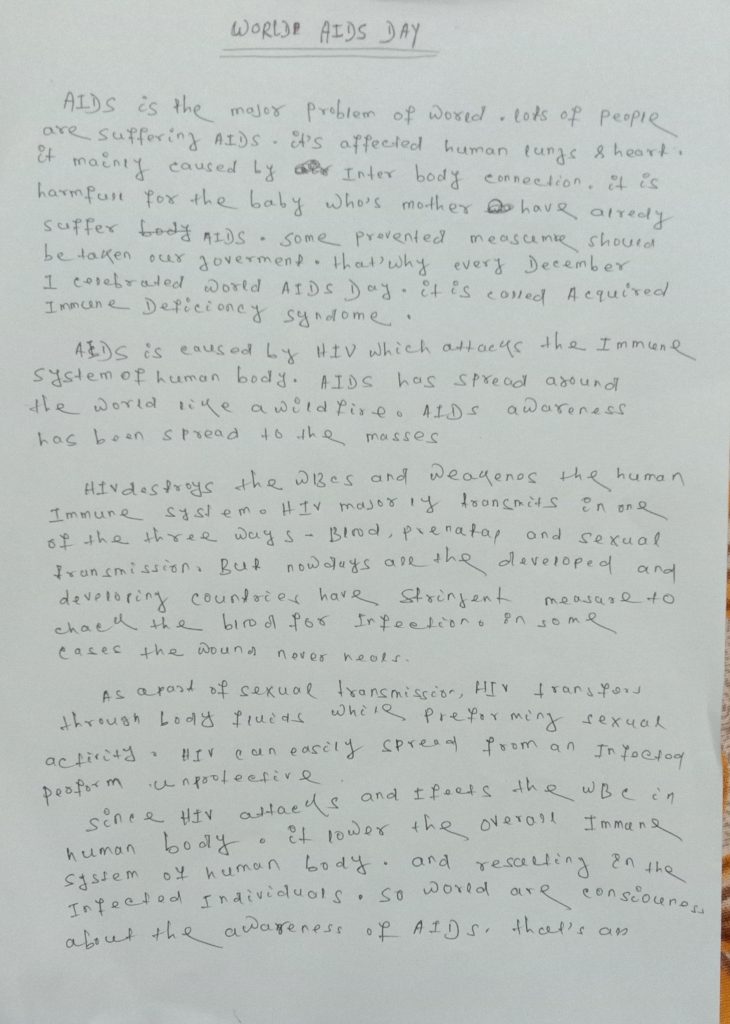 WORLD AIDS DAY
AIDS is the major problem of world. lots of people
are suffering AIDS. it's affected human lungs & heart.
it mainly caused by Inter body connection. it is
harmfull for the baby who's mother have alredy
suffer body AIDS. some prevented measure should
be taken our goverment. that's why every December
1 celebrated World AIDS Day. it is called Acquired
Immune Deficiency syndome.
AIDS is caused by HIV which attacks the Immune
system of human body. AIDS has spread around
the world like a wild fire. AIDS awareness
has been spread to the masses
HIV destroys the WBCs and weakenes the human
Immune system. HIV majorly transmits in one
of the three ways - Blood, prenatap and sexual
transmission. But nowdays are the developed and
developing countries have stringent measure to
chack the blood for Infection. In some
cases the wound never heals.
As apart of sexual transmission, HIV transfers
through body fluids while preforming sexual
activity. HIV can easily spread from an Infected
peoform unprotective
since HIV attacks and Ifects the WBC in
human body. it lower the overall Immune
system of human body. and resulting in the
Infected Individuals. so world are consciouness
about the awareness of AIDS. that's an